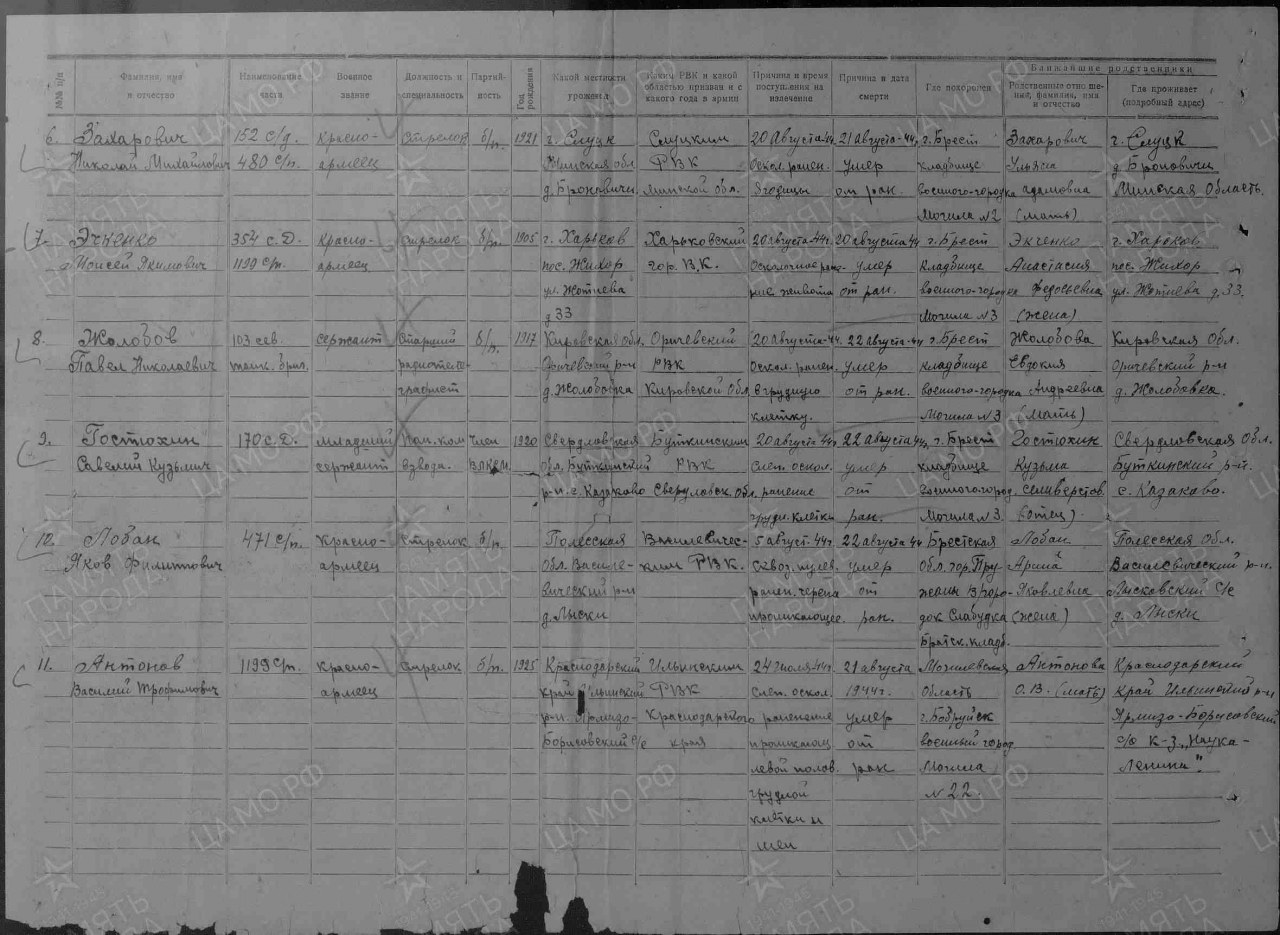 №№ п/п Фамилия, имя и отчество Наименование части Военное звание Должность и специальность Партийность Год рождения Какой местности уроженец Каким РВК и какой областью призван и с какого года в армии Причина и время поступления на излечение Причина и дата смерти Где похоронен Ближайшие родственники
Родственные отношения, фамилия, имя и отчество Где проживает (подробный адрес)
6. Захарович 152 с/д. красно- Стрелок б/п. 1921 г. Слуцк Слуцким 20 Августа-44 21 августа-44 г. Брест Захарович г. Слуцк
Николай Михайлович 480 с/п. армеец Минская обл. РВК Оскол. ранен. умер кладбище Ульяна д. Броновичи
д. Броновичи Минской обл. ягодицы от ран. военного-городка Адамовна Минская Область
Могила №2 (мать)
7. Экченко 354 с.д. красно- стрелок б/п. 1905 г. Харьков Харьковский 20 августа-44г. 20 августа-44 г. Брест Экченко г. Харьков
Моисей Якимович 1199 с/п. армеец пос. Жихор гор. В.К. Осколочное ране- умер кладбище Анастасия пос. Жихор
ул. живота от ран. военного-городка Федосьевна ул. д. 33.
д 33 Могила №3 (жена)
8. Жолобов 103 сержант Старший б/п. 1917 Кировская обл. Оричевский 20 августа-44. 22 августа-44 г. Брест Жолобова Кировская Обл.
Павел Николаевич танк. бриг. радиотеле- Оричевский р-н РВК Оскол. ранен. умер кладбище Евдокия Оричевский р-н
графист д. Жолобовка Кировской Обл. в грудную от ран. военного-городка Андреевна д. Жолобовка.
клетку. Могила №3 (мать)
9. Гостюхин 170 с.д. младший Пом. ком член 1920 Свердловская Буткинским 20 августа-44г. 22 августа-44г. г. Брест Гостюхин Свердловская Обл.
Савелий Кузьмич сержант взвода. ВЛКСМ обл. Буткинский РВК Слеп. оскол. умер кладбище Кузьма Буткинский р-н.
р-н. с. Казаково Свердловск. обл. ранение от военного город. Селиверстов. с. Казаково.
грудн. клетки ран. Могила №3. (отец)
10. Лобан 471 с/п. Красно- Стрелок б/п. Полесская Василевичес- 5 август. 44г. 22 августа-44 Брестская Лобан Полесская Обл.
Яков Филиппович армеец обл. Василе- ким РВК. Сквоз. пулев. умер Обл. гор. Пру- Арина Василевический р-н.
вический р-н ранен. черепа от жаны В/горо- Яковлевна Лысковский с/с
д. Лыски проникающее ран. док Слабудка (жена) д. Лыски
Братск. кладб.
11. Антонов 1199 с/п. красно- Стрелок б/п. 1925 Краснодарский Ильинским 24 июля-44г. 21 августа Могилевская Антонова Краснодарский
Василий Трофимович армеец край Ильинский РВК Слеп. оскол. 1944г. область О.В. (мать) Край Ильинский р-н
р-н. Ярмизо- Краснодарского ранение умер г. Бобруйск Ярмизо-Борисовский
Борисовский с/с края проникающ от военный город с/с к-з „Наука-
левой полов. ран Могила Ленина".
грудной №22.
клетки и
шеи
ЦА МО РФ
ПАМЯТЬ НАРОДА
1941-1945